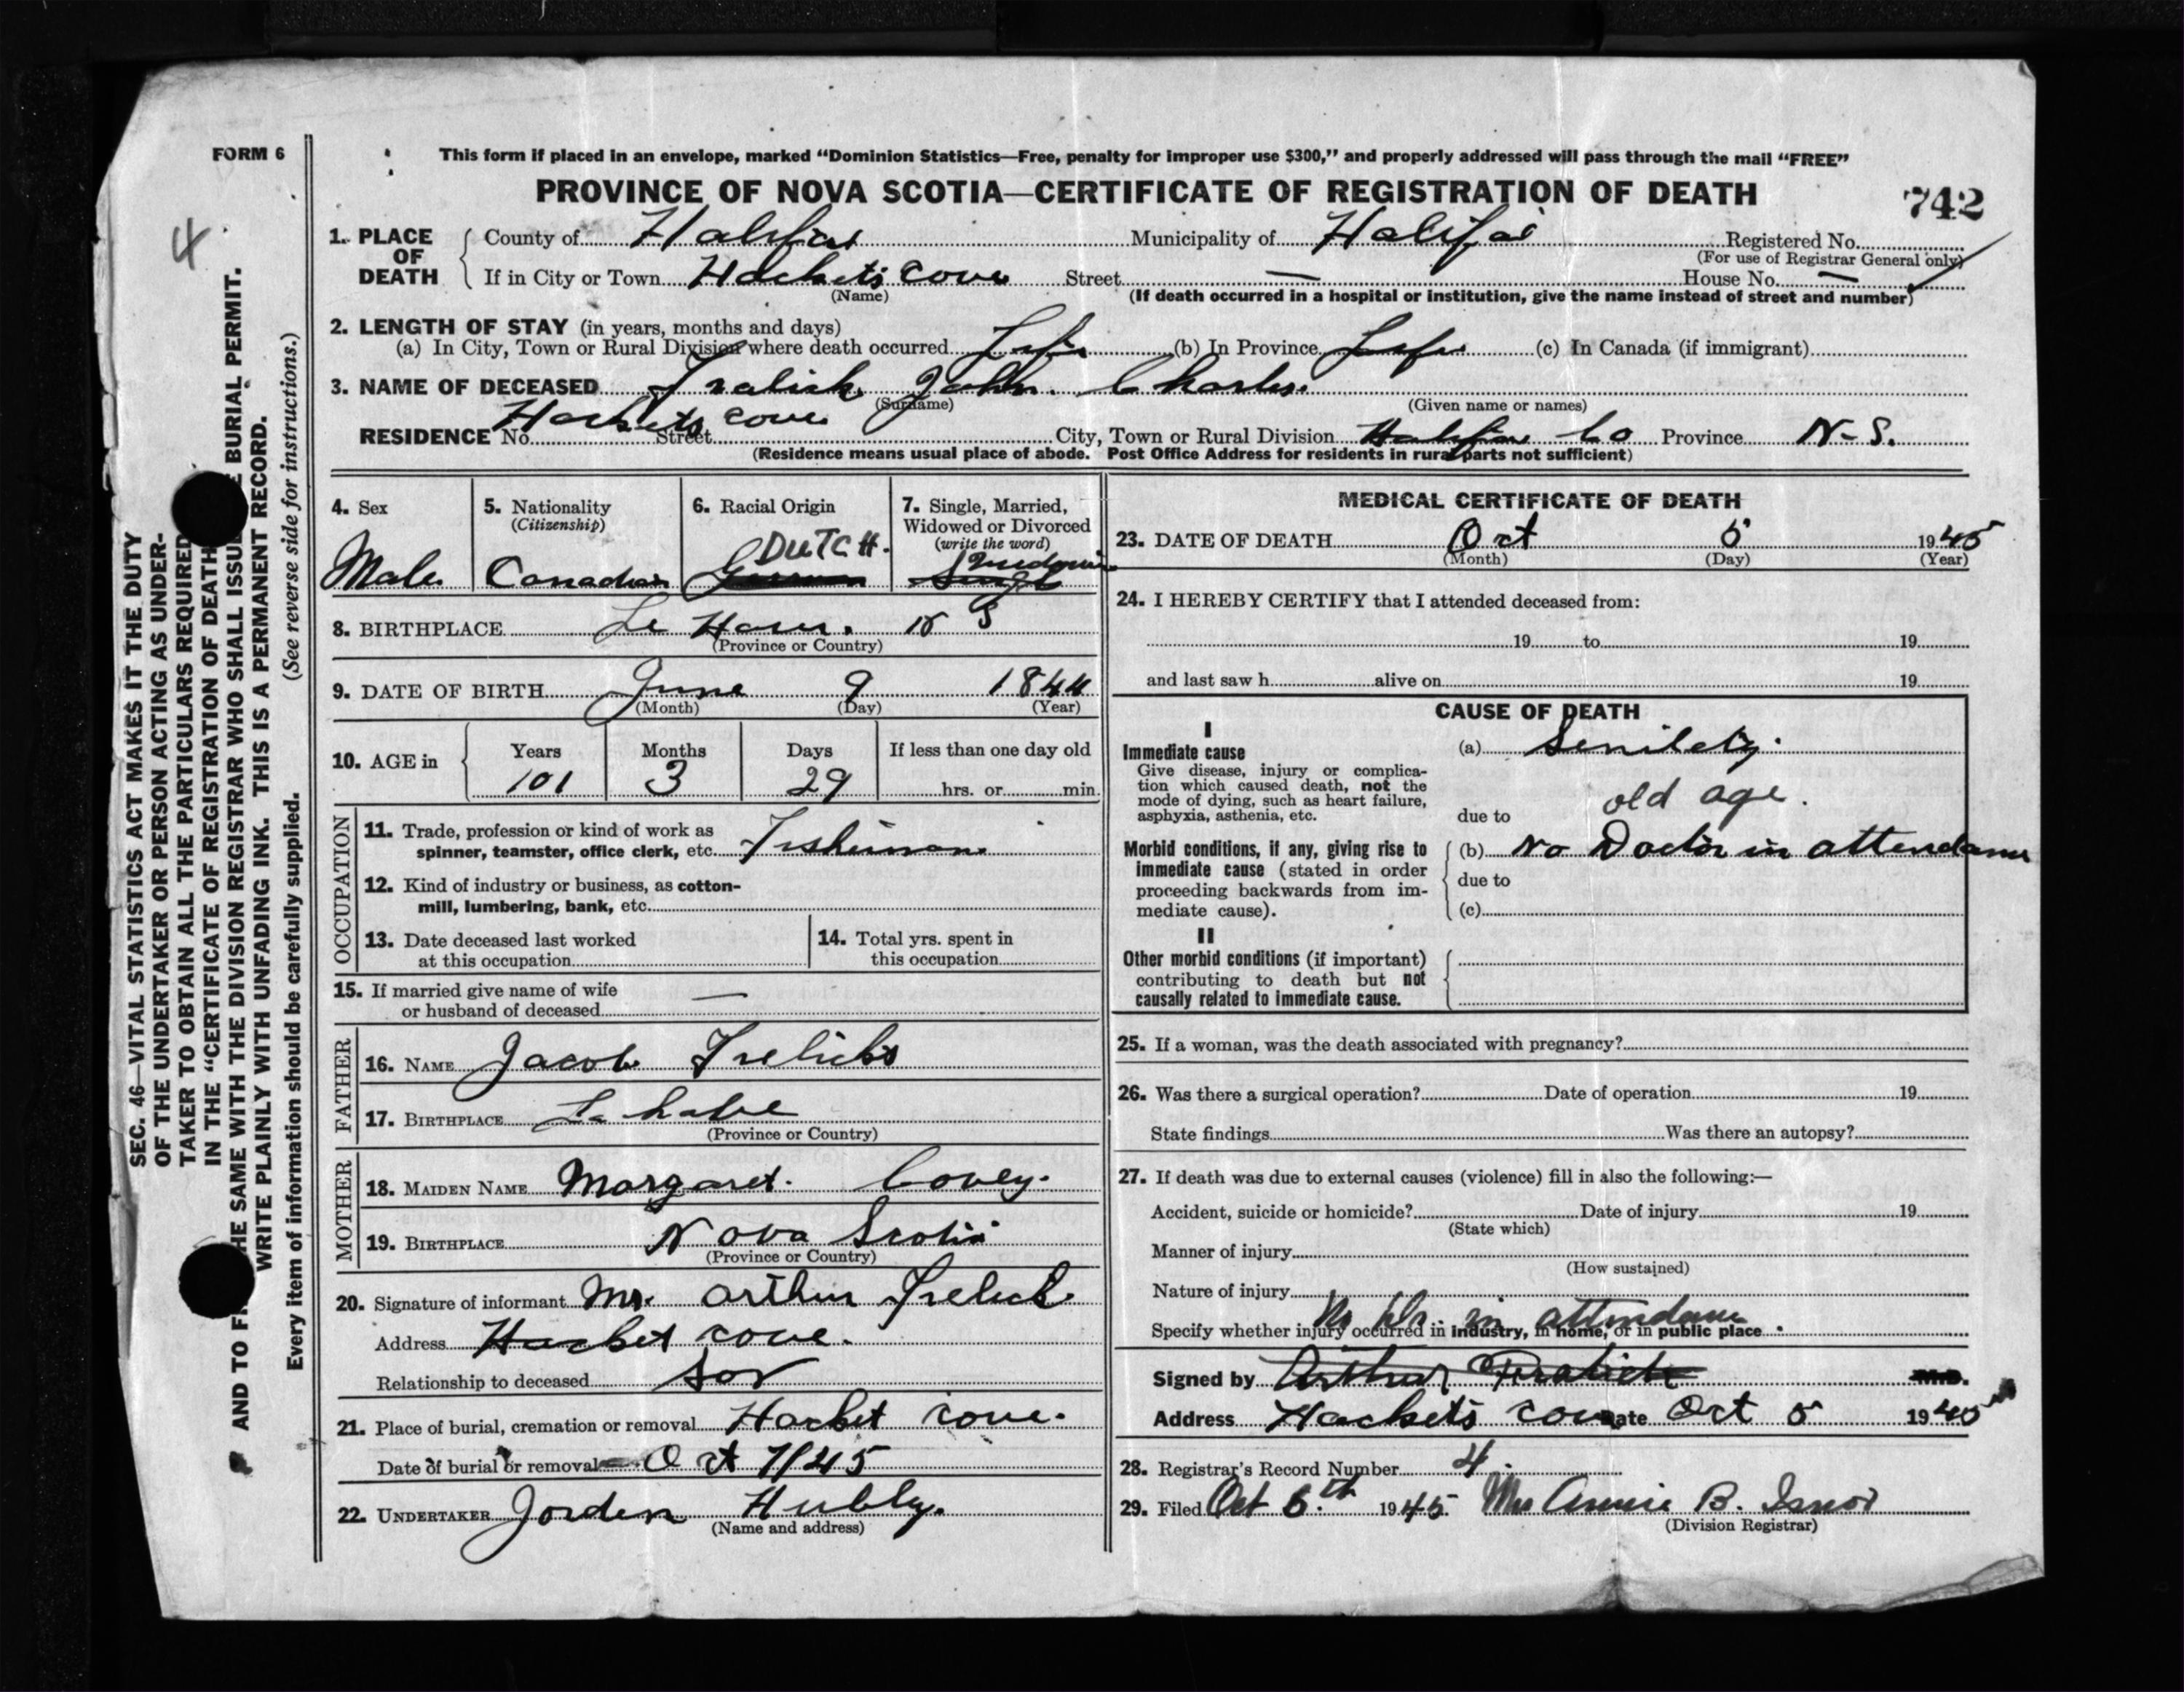 FORM 6
This form if placed in an envelope, marked “Dominion Statistics—Free, penalty for improper use $300,” and properly addressed will pass through the mail “FREE”
PROVINCE OF NOVA SCOTIA—CERTIFICATE OF REGISTRATION OF DEATH
742
4
SEC. 46—VITAL STATISTICS ACT MAKES IT THE DUTY
OF THE UNDERTAKER OR PERSON ACTING AS UNDER-
TAKER TO OBTAIN ALL THE PARTICULARS REQUIRED
IN THE “CERTIFICATE OF REGISTRATION OF DEATH
AND TO FI HE SAME WITH THE DIVISION REGISTRAR WHO SHALL ISSUE BURIAL PERMIT.
WRITE PLAINLY WITH UNFADING INK. THIS IS A PERMANENT RECORD.
Every item of information should be carefully supplied. (See reverse side for instructions.)
1. PLACE OF DEATH
County of Halifax Municipality of Halifax Registered No.
(For use of Registrar General only)
If in City or Town Hackets Cove Street — House No. —
(Name) (If death occurred in a hospital or institution, give the name instead of street and number)
2. LENGTH OF STAY (in years, months and days)
(a) In City, Town or Rural Division where death occurred Life (b) In Province Life (c) In Canada (if immigrant)
3. NAME OF DECEASED Fralick John Charles
(Surname) (Given name or names)
RESIDENCE No. Street Hackets Cove City, Town or Rural Division Halifax Co Province N-S.
(Residence means usual place of abode. Post Office Address for residents in rural parts not sufficient)
4. Sex
Male
5. Nationality
(Citizenship)
Canadian
6. Racial Origin
DUTCH.
German
7. Single, Married,
Widowed or Divorced
(write the word)
Single
8. BIRTHPLACE Le Have. N S
(Province or Country)
9. DATE OF BIRTH June 9 1844
(Month) (Day) (Year)
10. AGE in
Years Months Days If less than one day old
101 3 29 hrs. or min.
OCCUPATION
11. Trade, profession or kind of work as
spinner, teamster, office clerk, etc. Fisherman
12. Kind of industry or business, as cotton-
mill, lumbering, bank, etc.
13. Date deceased last worked
at this occupation
14. Total yrs. spent in
this occupation
15. If married give name of wife
or husband of deceased —
FATHER
16. NAME Jacob Frelicks
17. BIRTHPLACE La have
(Province or Country)
MOTHER
18. MAIDEN NAME Margaret. Covey.
19. BIRTHPLACE Nova Scotia
(Province or Country)
20. Signature of informant Mr. Arthur Frelick
Address Hacket Cove.
Relationship to deceased Son
21. Place of burial, cremation or removal Hacket Cove.
Date of burial or removal Oct 7/45
22. UNDERTAKER Jorden Hubley.
(Name and address)
MEDICAL CERTIFICATE OF DEATH
23. DATE OF DEATH Oct 5 1945
(Month) (Day) (Year)
24. I HEREBY CERTIFY that I attended deceased from:
19 to 19
and last saw h alive on 19
CAUSE OF DEATH
I
Immediate cause (a) Senilety.
Give disease, injury or complica-
tion which caused death, not the
mode of dying, such as heart failure,
asphyxia, asthenia, etc. due to
old age.
Morbid conditions, if any, giving rise to
immediate cause (stated in order
proceeding backwards from im-
mediate cause).
(b) No Doctor in attendance
due to
(c)
II
Other morbid conditions (if important)
contributing to death but not
causally related to immediate cause.
25. If a woman, was the death associated with pregnancy?
26. Was there a surgical operation? Date of operation 19
State findings Was there an autopsy?
27. If death was due to external causes (violence) fill in also the following:—
Accident, suicide or homicide? Date of injury 19
(State which)
Manner of injury
(How sustained)
Nature of injury
No Dr. in attendance
Specify whether injury occurred in industry, in home, or in public place
Signed by Arthur Fralick M.D.
Address Hackets Cove Date Oct 5 1945
28. Registrar's Record Number 4.
29. Filed Oct 6.th 1945. Mrs Annie B. Isnor
(Division Registrar)